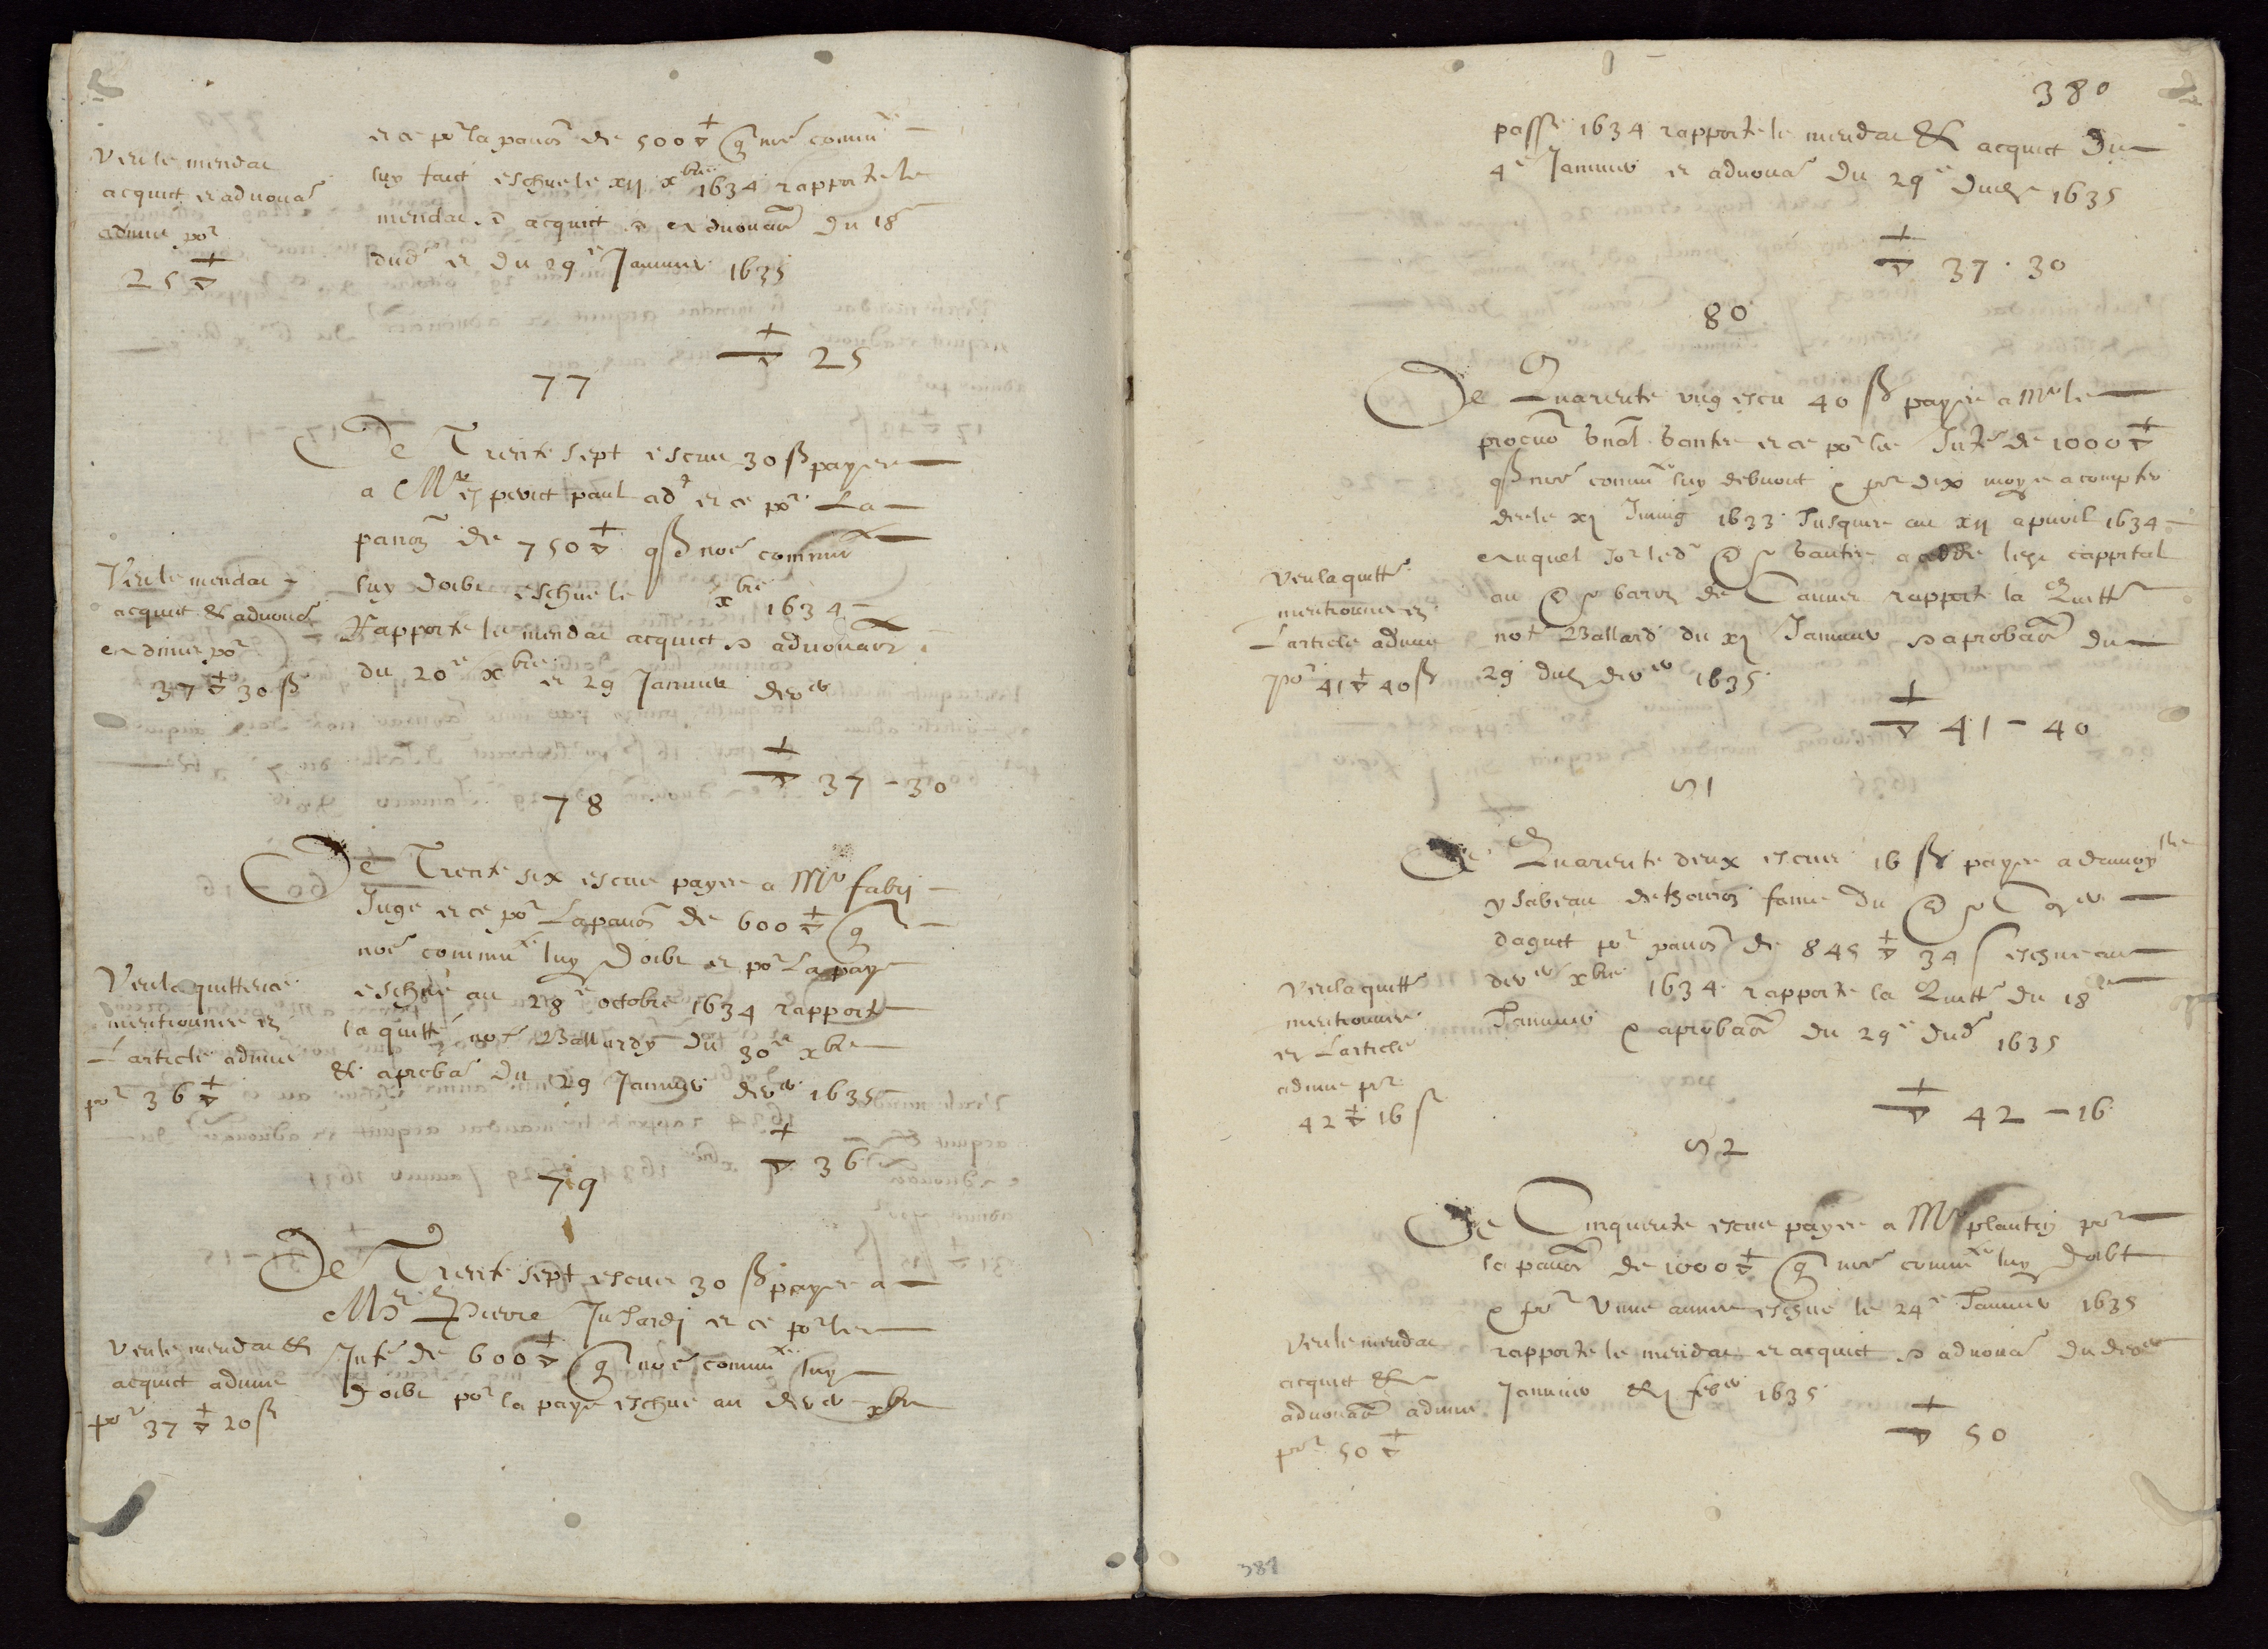 et ce por la pañon de 500 ▽ q nre commte
luy faict escheue le xii xbre 1634 rapporte le
mendat acquict advouaon du 18e
dud et du 29e Januier 1635
Veu le mendat
acquict et advoua
admis por
25 ▽
▽ 25
77
De Trente sept escus 30 ß payes
a Mre perict paul adt et ce por La
pañon de 750 ▽ q noe commte
luy doibt escheue le xbre 1634
Rapporte le mendat acquict advouaon
du 20e xbre et 29 Januier der
Veu le mendat
acquict & advoua
admis por
37 ▽ 30 ß
▽ 37 - 30
78
De Trente six escus payes a Mr fabry
Juge et ce por La pañon de 600 ▽ q
noe commte luy doibt et por La paye
escheue au 28e octobre 1634 rapporte
la quitte not Ballardy du 30e xbre
& aproba du 29 Januier der 1635
Veu la quittence
mentionnee en
L'article admis
por 36 ▽
▽ 36
79
De Trente sept escus 30 ß payes a
Mre Pierre Jusardj et ce por les
Inte de 600 ▽ q noe commte luy
doibt por la paye escheue au der xbre
Veu le mendat &
acquict admis
por 37 ▽ 20 ß
380
passe 1634 rapporte le mendat & acquict du
4e Januier et advoua du 29e dud 1635
▽ 37 . 30
80
De Quarente ung escu 40 ß payes a Mr le
procur gnal bantre et ce por les Inte de 1000 ▽
q nre commte luy debvoit por dix moys a compter
des le xj Juing 1633 Jusques au xii apuril 1634
auquel Jor led Sr bantre a cedde led cappital
au Sr baron de rapporte la Quitte
not Ballard du xj Januier aprobaon du
29 dud der 1635
Veu la quitte
mentionnee en
L'article admis
por 41 ▽ 40 ß
▽ 41 - 40
81
De Quarente deux escus 16 ß payes a damoyslle
ysabeau de thoron fame du Sr
dagut por pañon de 845 ▽ 34 ß escheue au
der xbre 1634 rapporte la Quitte du 18e
Januier aprobaon du 29e dud 1635
Veu la quitte
mentionnee
en L'article
admis por
42 ▽ 16 ß
▽ 42 - 16
82
De Cinquente escus payes a Mr plantin por
la pañon de 1000 ▽ q nre commte luy doibt
por Vnne annee escheue le 24e Januier 1635
rapporte le mendat et acquict advoua du der
Januier & j febr 1635
Veu le mendat
acquict &
advouaon admis
por 50 ▽
▽ 50
381